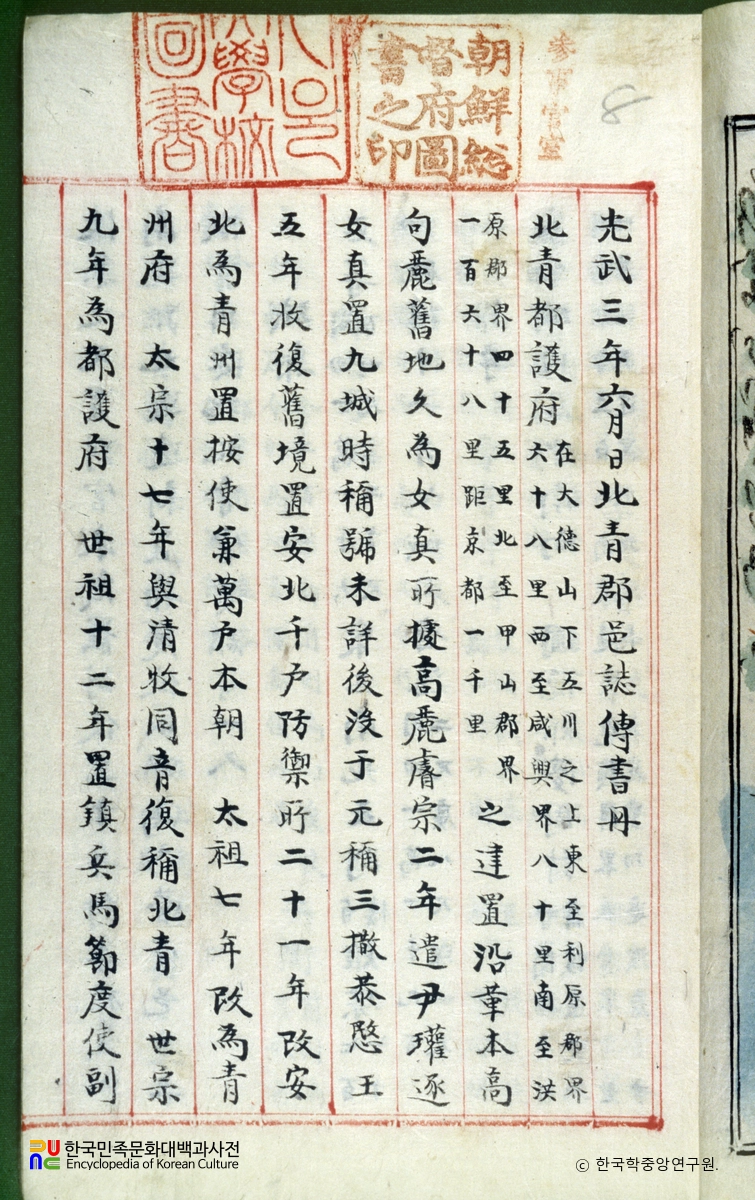 參事官室
8
朝鮮総
督府圖
書之印
學校
圖書
光武三年六月日北青郡邑誌傳書冊
北青都護府
在大德山下五川之上東至利原郡界
六十八里西至咸興界八十里南至洪
原郡界四十五里北至甲山郡界
一百六十八里距京都一千里
之建置沿革本高
句麗舊地久為女真所據高麗睿宗二年遣尹瓘逐
女真置九城時稱號未詳後沒于元稱三撒恭愍王
五年收復舊境置安北千戶防禦所二十一年改安
北為青州置按使兼萬戶本朝 太祖七年改為青
州府 太宗十七年與清牧同音復稱北青 世宗
九年為都護府 世祖十二年置鎮兵馬節度使副
한국민족문화대백과사전
Encyclopedia of Korean Culture
ⓒ 한국학중앙연구원.